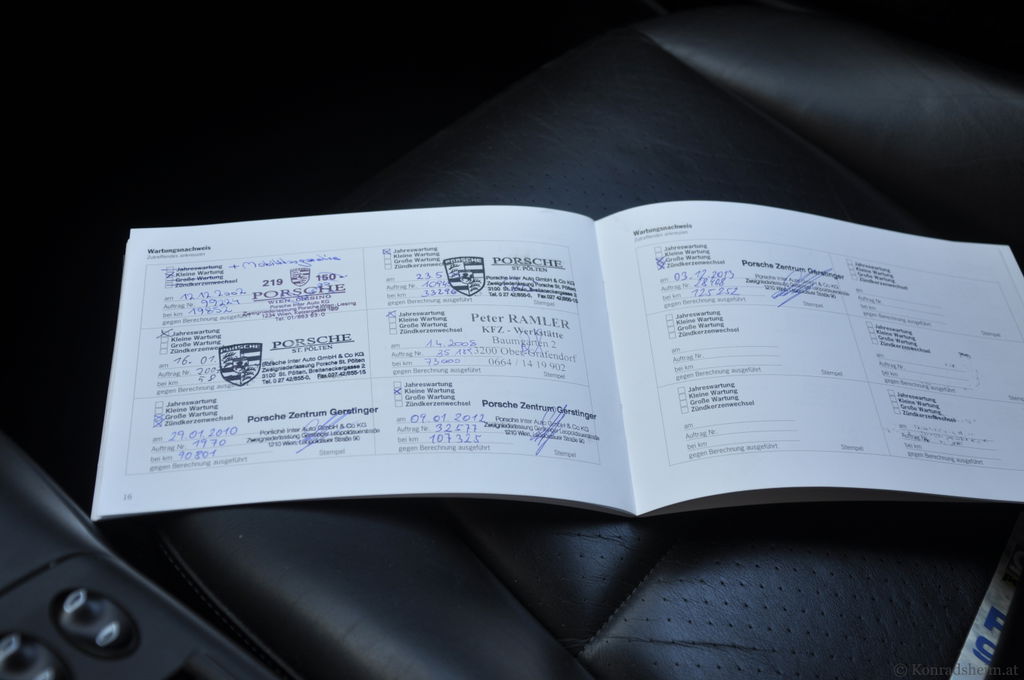 Wartungsnachweis
Zutreffendes ankreuzen
Jahreswartung
Kleine Wartung
Große Wartung
Zündkerzenwechsel
am 12.12.2002
Auftrag Nr.
bei km
gegen Berechnung ausgeführt
219 150
PORSCHE
WIEN LIESING
Porsche Inter Auto KG
Jahreswartung
Kleine Wartung
Große Wartung
Zündkerzenwechsel
am 23.5
Auftrag Nr.
bei km
gegen Berechnung ausgeführt
Stempel
PORSCHE
PORSCHE
ST. PÖLTEN
Porsche Inter Auto GmbH & Co KG
Zweigniederlassung Porsche St. Pölten
3100 St. Pölten, Breiteneckergasse 2
Jahreswartung
Kleine Wartung
Große Wartung
Zündkerzenwechsel
am 16. 01
Auftrag Nr.
bei km
gegen Berechnung ausgeführt
PORSCHE
PORSCHE
ST. PÖLTEN
Porsche Inter Auto GmbH & Co KG
Zweigniederlassung Porsche St. Pölten
3100 St. Pölten, Breiteneckergasse 2
Jahreswartung
Kleine Wartung
Große Wartung
Zündkerzenwechsel
am 1.4.2008
Auftrag Nr.
bei km 73000
gegen Berechnung ausgeführt
Stempel
Peter RAMLER
KFZ - Werkstätte
Baumgarten 2
3200 Ober-Grafendorf
0664 / 14 19 902
Jahreswartung
Kleine Wartung
Große Wartung
Zündkerzenwechsel
am 29.01.2010
Auftrag Nr. 1970
bei km 90801
gegen Berechnung ausgeführt
Stempel
Porsche Zentrum Gerstinger
Porsche Inter Auto GmbH & Co KG
1210 Wien, Leopoldauer Straße 90
Jahreswartung
Kleine Wartung
Große Wartung
Zündkerzenwechsel
am 09.01.2012
Auftrag Nr. 32577
bei km 107325
gegen Berechnung ausgeführt
Stempel
Porsche Zentrum Gerstinger
Porsche Inter Auto GmbH & Co KG
1210 Wien, Leopoldauer Straße 90
16
Wartungsnachweis
Zutreffendes ankreuzen
Jahreswartung
Kleine Wartung
Große Wartung
Zündkerzenwechsel
am 03.12.2013
Auftrag Nr. 18768
bei km 125 252
gegen Berechnung ausgeführt
Stempel
Porsche Zentrum Gerstinger
Porsche Inter Auto GmbH & Co KG
1210 Wien, Leopoldauer Straße 90
Jahreswartung
Kleine Wartung
Große Wartung
Zündkerzenwechsel
am
Auftrag Nr.
bei km
gegen Berechnung ausgeführt
Stempel
Jahreswartung
Kleine Wartung
Große Wartung
Zündkerzenwechsel
am
Auftrag Nr.
bei km
gegen Berechnung ausgeführt
Stempel
Jahreswartung
Kleine Wartung
Große Wartung
Zündkerzenwechsel
am
Auftrag Nr.
bei km
gegen Berechnung ausgeführt
Jahreswartung
Kleine Wartung
Große Wartung
Zündkerzenwechsel
am
Auftrag Nr.
bei km
gegen Berechnung ausgeführt
Stempel
Jahreswartung
Kleine Wartung
Große Wartung
Zündkerzenwechsel
am
Auftrag Nr.
bei km
gegen Berechnung ausgeführt
© Konradsheim.at